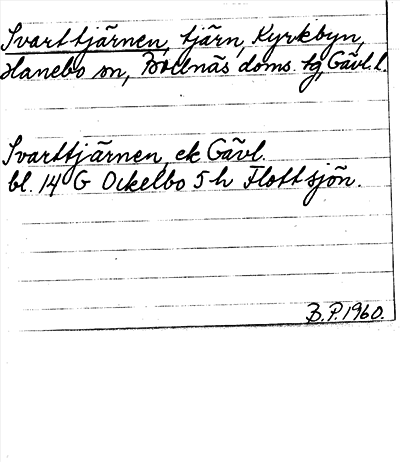 Svarttjärnen, tjärn, Kyrkbyn,
Hanebo sn, Bollnäs doms. tg, Gävl. l.
Svarttjärnen, ek Gävl.
bl. 14 G Ockelbo 5 h Flottsjön.
B.P. 1960.